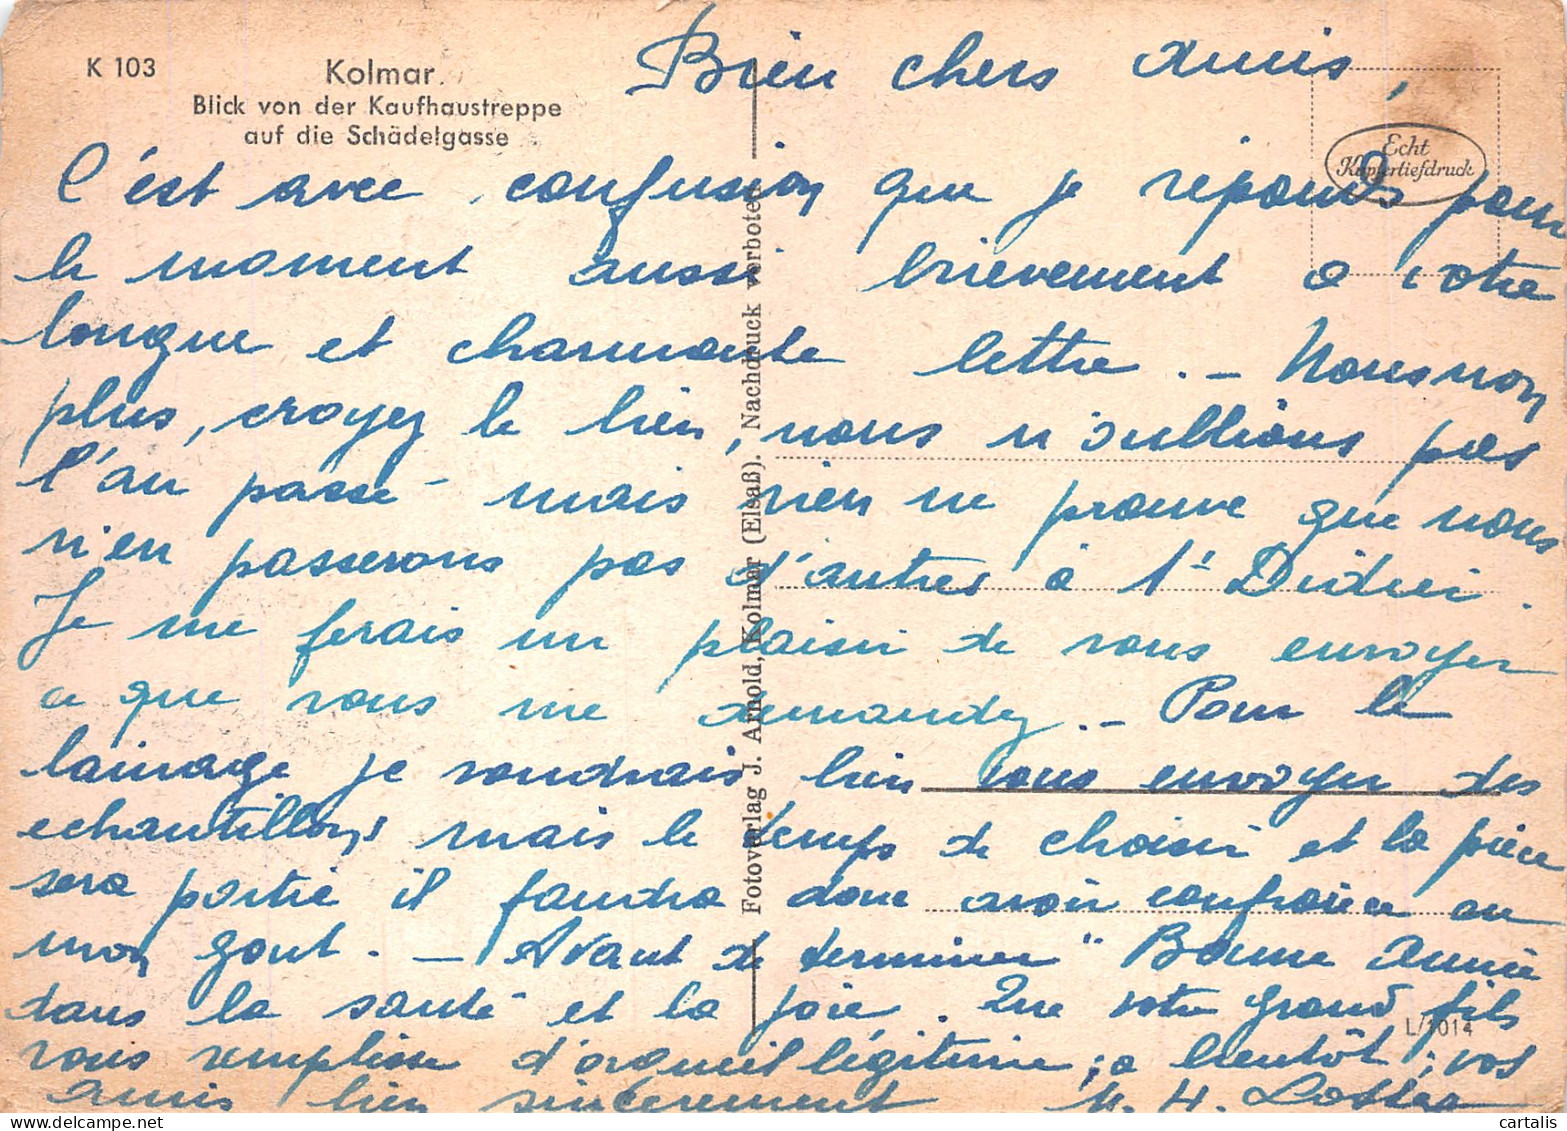 K 103
Kolmar.
Blick von der Kaufhaustreppe
auf die Schädelgasse
Echt
Kupfertiefdruck
Fotoverlag J. Arnold, Kolmar (Elsaß). Nachdruck verboten
L/1014
Bien chers amis,
C'est avec confusion que je réponds pour
le moment aussi brièvement à votre
longue et charmante lettre. - Nous non
plus, croyez le bien, nous n'oublions pas
l'an passé - mais rien ne prouve que nous
n'en passerons pas d'autres à St Didier.
Je me ferais un plaisir de vous envoyer
ce que vous me demandez. - Pour le
lainage je voudrais bien vous envoyer des
echantillons mais le temps de choisir et la pièce
sera partie il faudra donc avoir confiance en
mon gout. - Avant de terminer "Bonne Année
dans la santé et la joie. Que votre grand fils
vous remplisse d'orgueil légitime ; a bientôt ; vos
amis bien sincerement M. H.
cartalis